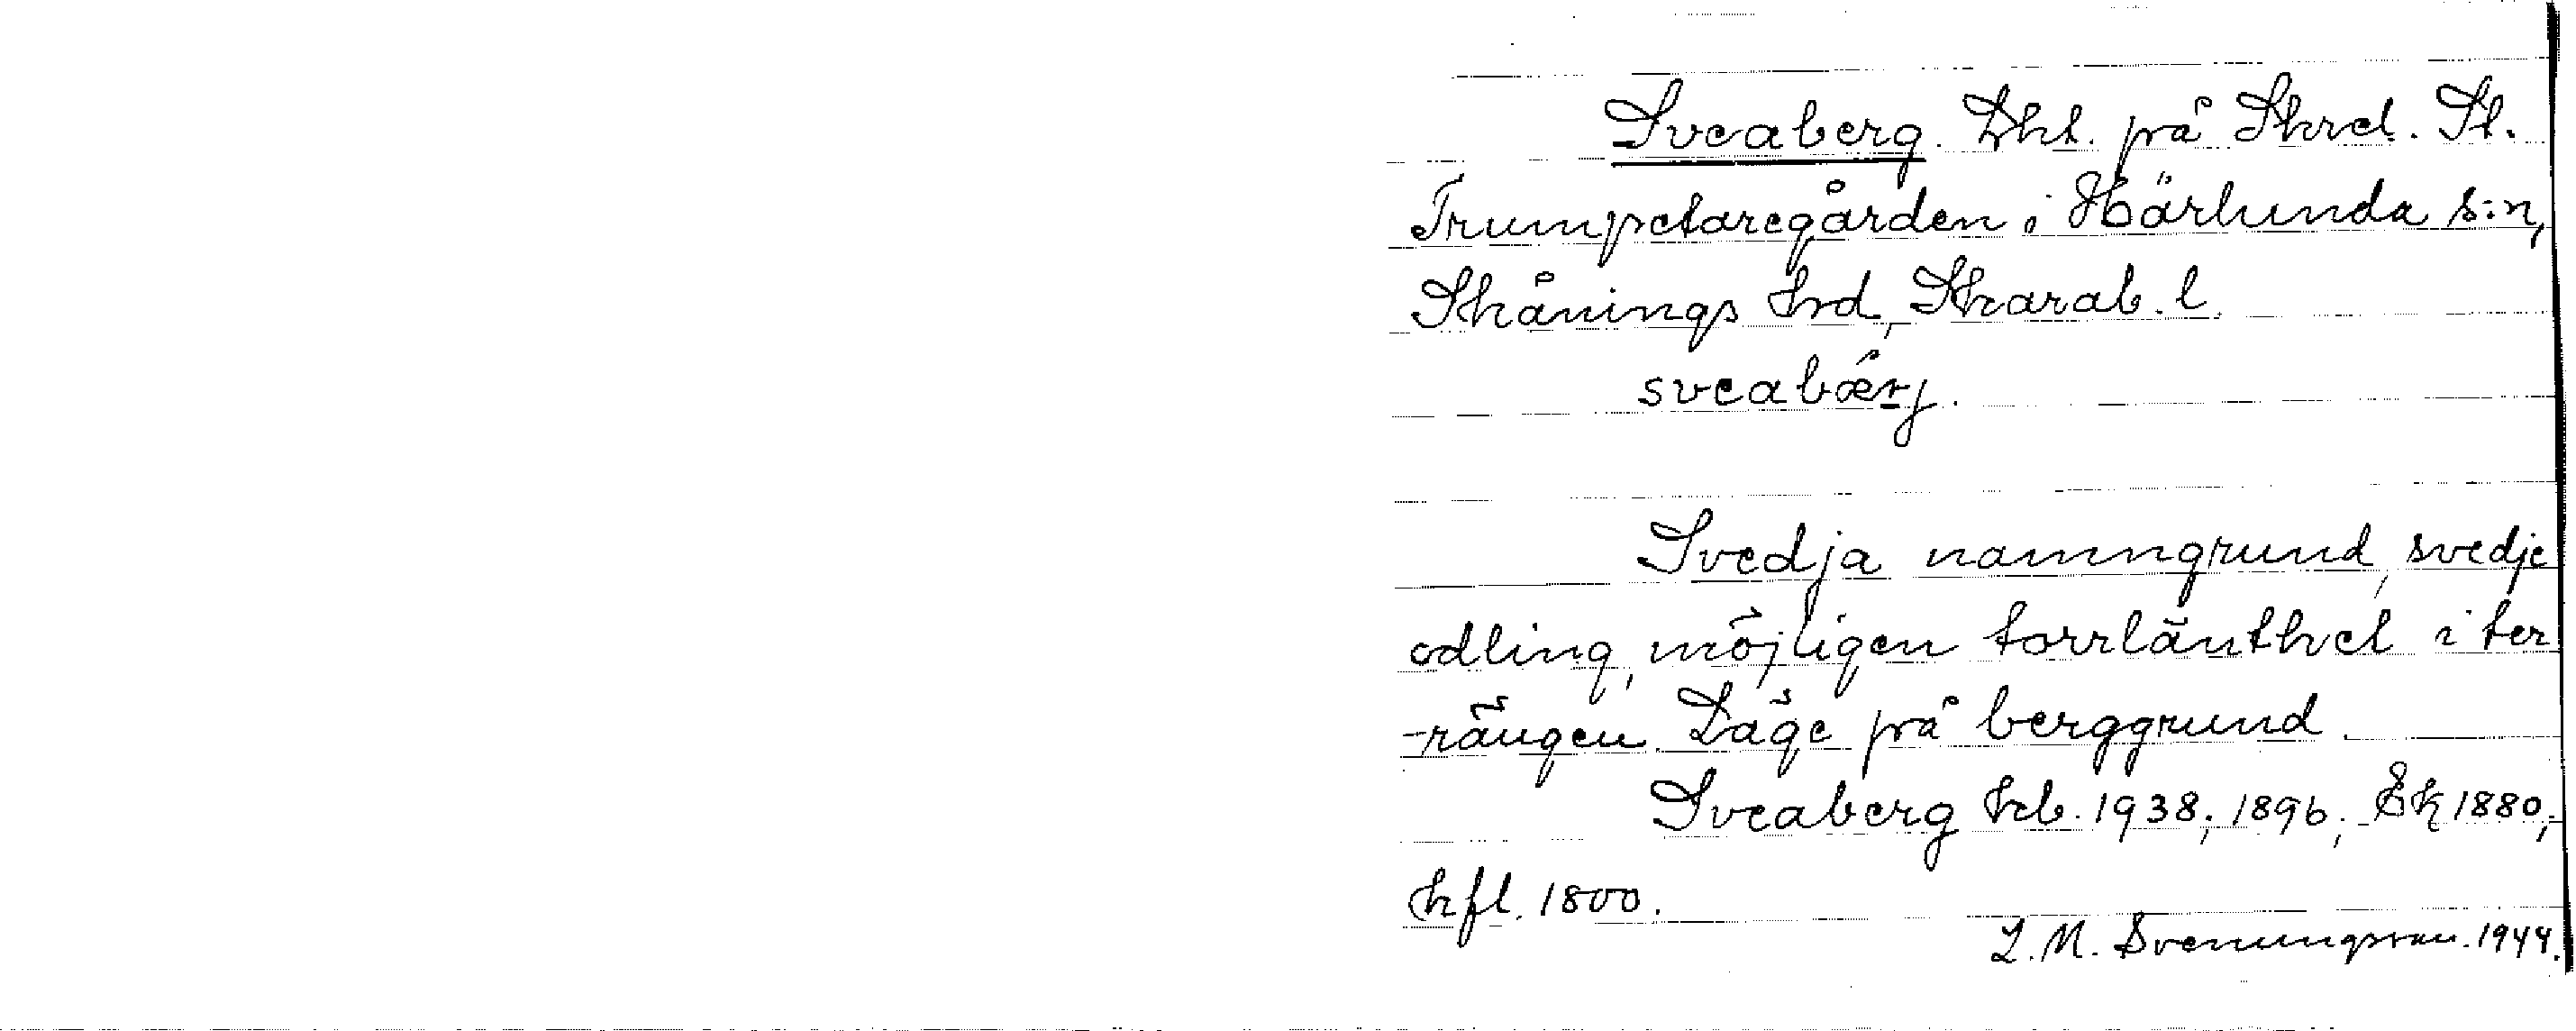 Sveaberg. Lht. på Skrd. St.
Trumpetaregården i Härlunda s:n,
Skånings hrd, Skarab. l.
sveabærj.
Svedja namngrund, svedje
odling, möjligen torrlänthet i ter
-rängen. Läge på berggrund.
Sveaberg hb. 1938; 1896; Ek 1880;
hfl. 1800.
L. M. Svenungsson. 1944.